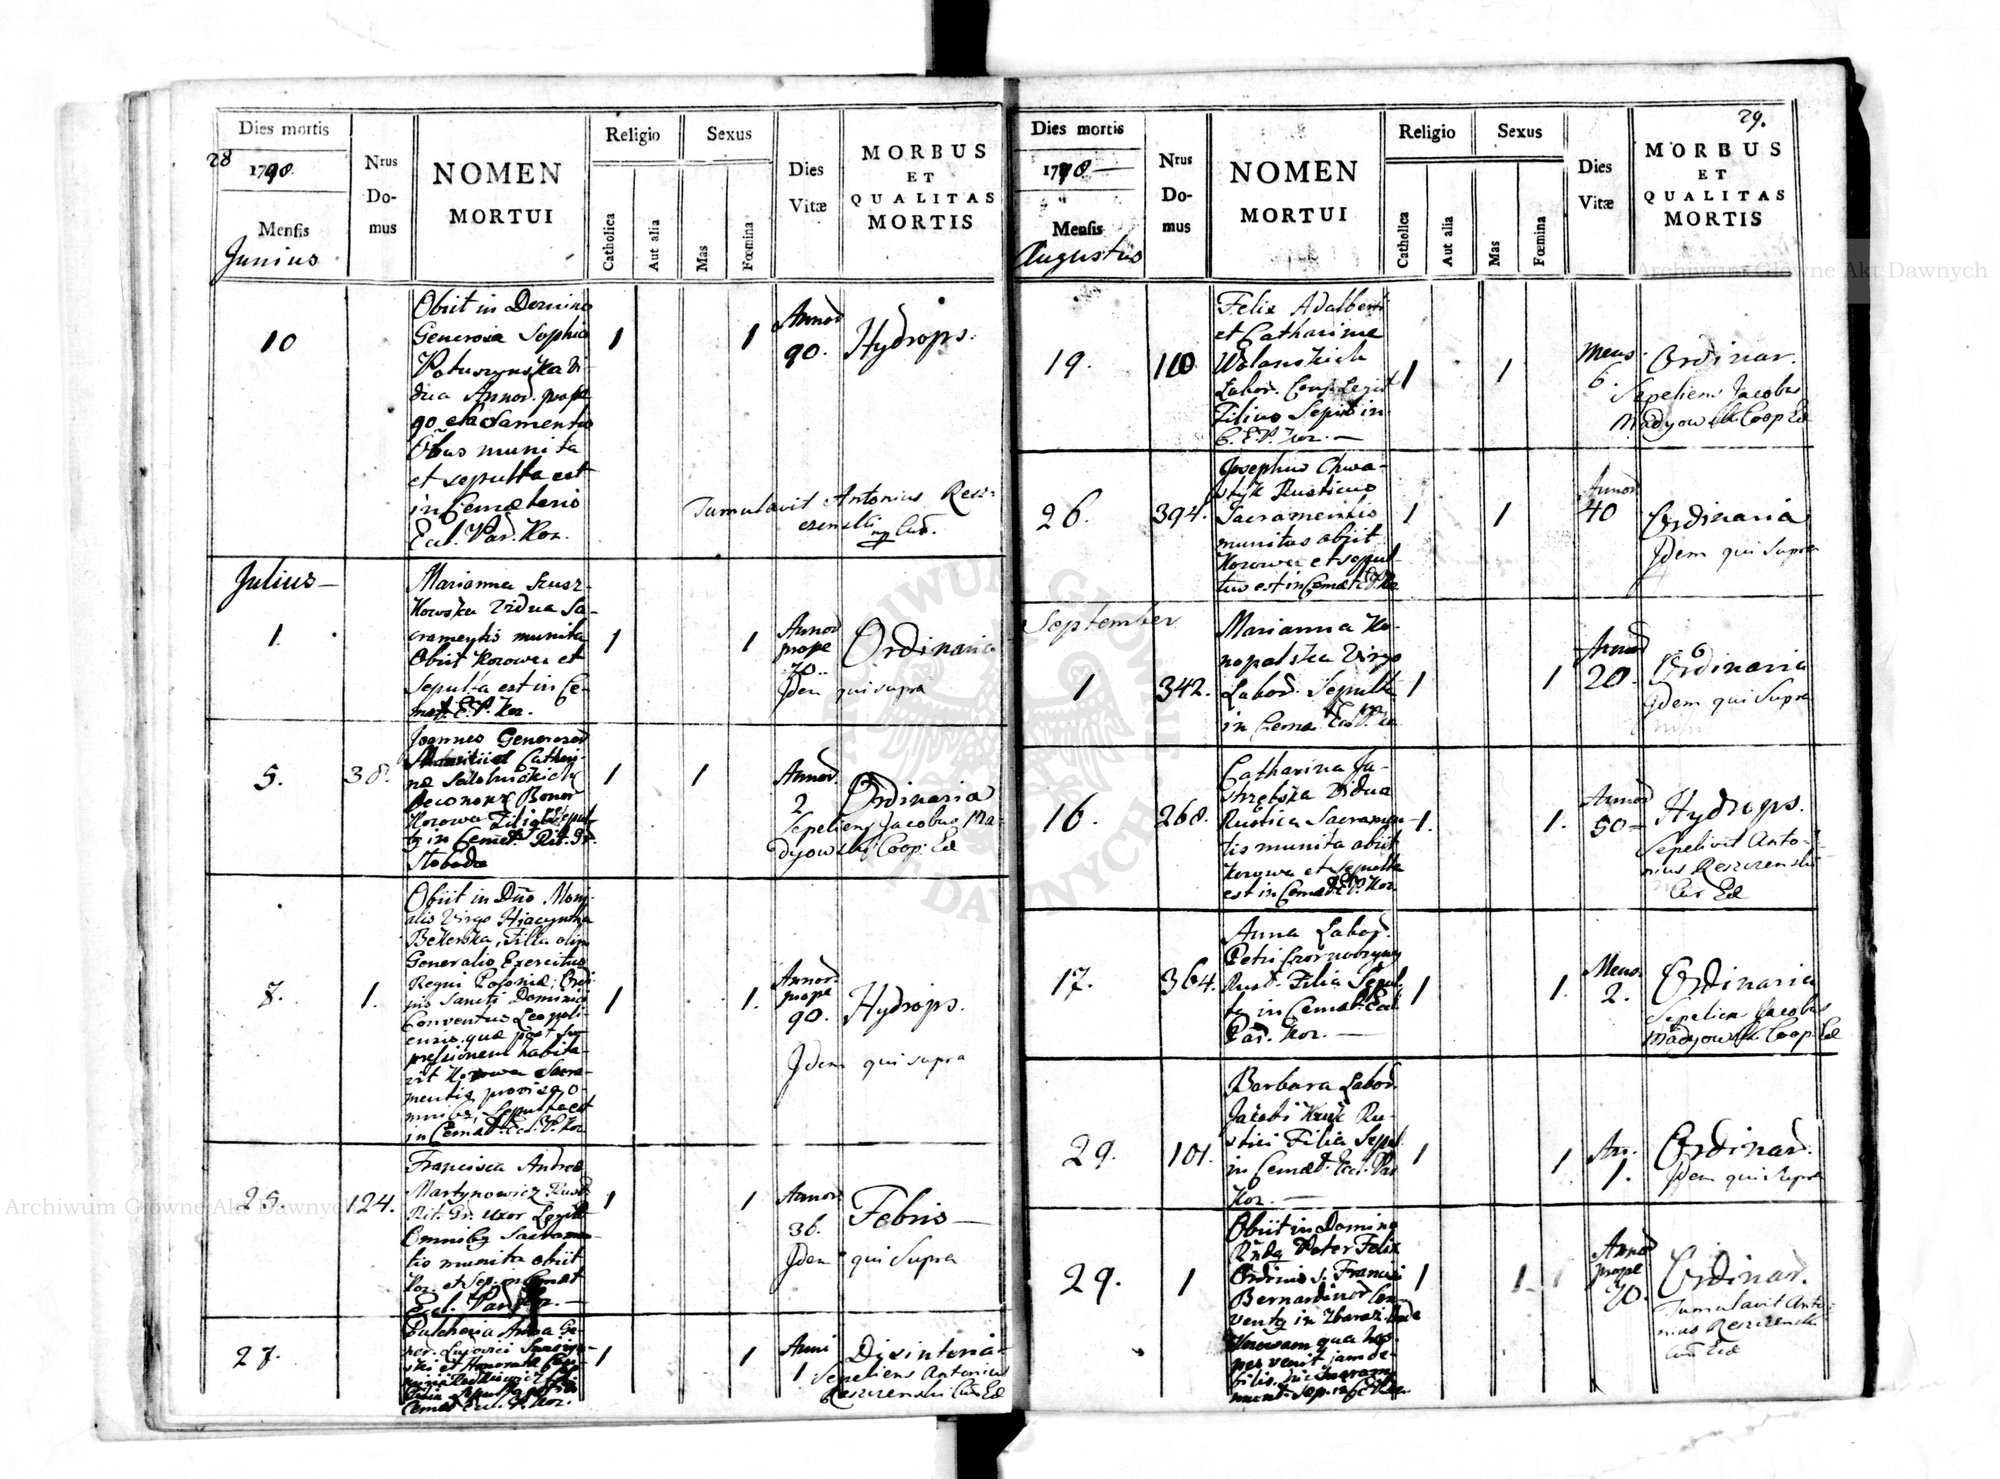 28
Dies mortis
1798.
Mensis
Junius
Nrus
Do-
mus
NOMEN
MORTUI
Religio
Catholica
Aut alia
Sexus
Mas
Fœmina
Dies
Vitæ
MORBUS
ET
QUALITAS
MORTIS
10
Obiit in Domino
Generosa Sophia
Vidua Annor. prope
90 Sacramentis
Oĩbus munita
et sepulta est
in Cemæterio
Ecl. Par. Kor.
1
1
Annor
90.
Hydrops.
Tumulavit Antonius Resz-
czenski mp Cur.
Julius
1.
Marianna Szusz-
kowska Vidua Sa-
cramentis munita
Obiit Korowa et
Sepulta est in Ce-
mæt. E. P. Kor.
1
1
Annor
prope
70.
Ordinaria
Idem qui supra
5.
38.
Joannes Generosor
Cathari-
næ
Korowa
in Cemæt. Rit. Gr.
Stobodæ
1
1
Annor.
2
Ordinaria
Sepeliens Jacobus Ma-
dyowski Coop. Ecl
8.
1.
Obiit in Dño Moni-
alis Virgo Hiacyntha
Bekierska, Filia olim
Generalis Exercitus
Regni Poloniæ; Ordi-
nis Sancti Dominici
Conventus Leopoli-
ensis, quæ post su-
pressionem habita-
vit Korowa Sacra-
mentis provisa o-
mnibus, Sepulta est
in Cemæt. Ecl. P. Kor
1
1.
Annor.
prope
90.
Hydrops.
Idem qui supra
25.
124.
Francisca Andreæ
Martynowicz Rust.
Rit. Gr. Uxor Legit.
Omnibus Sacramen-
tis munita obiit
Kor. et Sep. in Cemæt
Ecl. Par. Kor.
1
1
Annor
36.
Febris
Idem qui Supra
27.
Pulcheria Anna Ge-
ner. Ludovici
Cemæt Ecl. P. Kor.
1
1
Anni
1
Disinteria
Sepeliens Antonius
Reszczenski Cur. Ecl
29.
Dies mortis
1798
Mensis
Augustus
Nrus
Do-
mus
NOMEN
MORTUI
Religio
Catholica
Aut alia
Sexus
Mas
Fœmina
Dies
Vitæ
MORBUS
ET
QUALITAS
MORTIS
19.
110
Felix Adalberti
et Catharinæ
Wolanskich
Labor. Conj. Legit
Filius Sepult in
C. E. P. Kor.
1
1
Mens.
6.
Ordinar.
Sepeliens Jacobus
Madyowski Coop Ecl
26.
394.
Josephus Chwa-
styk Rusticus
Sacramentis
munitus obiit
Korowa et sepul-
tus est in Cemæt E. P. Kor
1
1
Annor
40
Ordinaria
Idem qui supra
September
1
342.
Marianna Ko-
nopalska Virgo
Labor. Sepulta
in Cemæ. Ecl. P. Kor
1
1
Annor
20.
Ordinaria
Idem qui Supra
16.
268.
Catharina Ja-
strzębska Vidua
Rustica Sacramen-
tis munita obiit
Korowa et Sepulta
est in Cemæt. E. P. Kor.
1.
1.
Annor
50
Hydrops.
Sepelivit Anto-
nius Reszczenski
Cur Ecl
17.
364.
Anna Labor.
Petri
Rust. Filia Sepul-
ta in Cemæt. Ecl
Par. Kor.
1
1.
Mens.
2.
Ordinaria
Sepeliens Jacobus
Madyowski Coop. Ecl
29.
101.
Barbara Labor.
Jacobi Kruk Ru-
stici Filia Sepul
in Cemæt. Ecl. Par
Kor.
1
1
An.
1.
Ordinar.
Idem qui Supra
29.
1
Obiit in Domino
Rñdus Pater Felix
Ordinis S. Francisci
Bernardinor Con-
ventus in Zbaraz
1
1
Annor
prope
70.
Ordinar.
Tumulavit Anto-
nius Reszczenski
Cur Ecl
Archiwum Główne Akt Dawnych
Archiwum Główne Akt Dawnych
ARCHIWUM GŁÓWNE AKT DAWNYCH